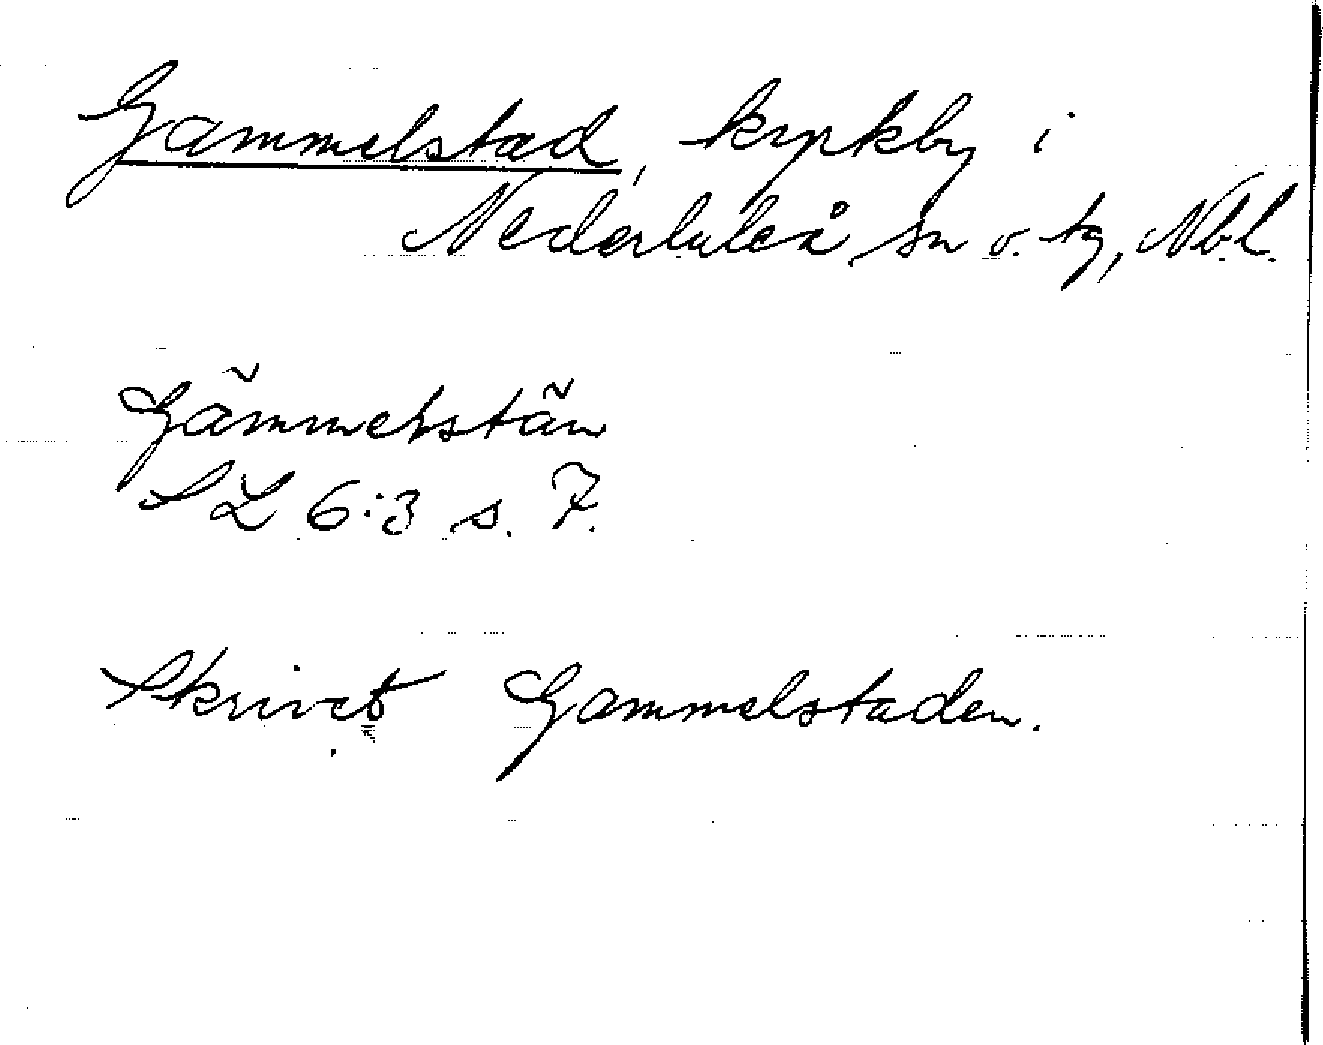 Gammelstad, kyrkby i
Nederluleå sn o. tg, Nbl.
Gãmmelstãn
SL 6:3 s. 7.
Skrivet Gammelstaden.